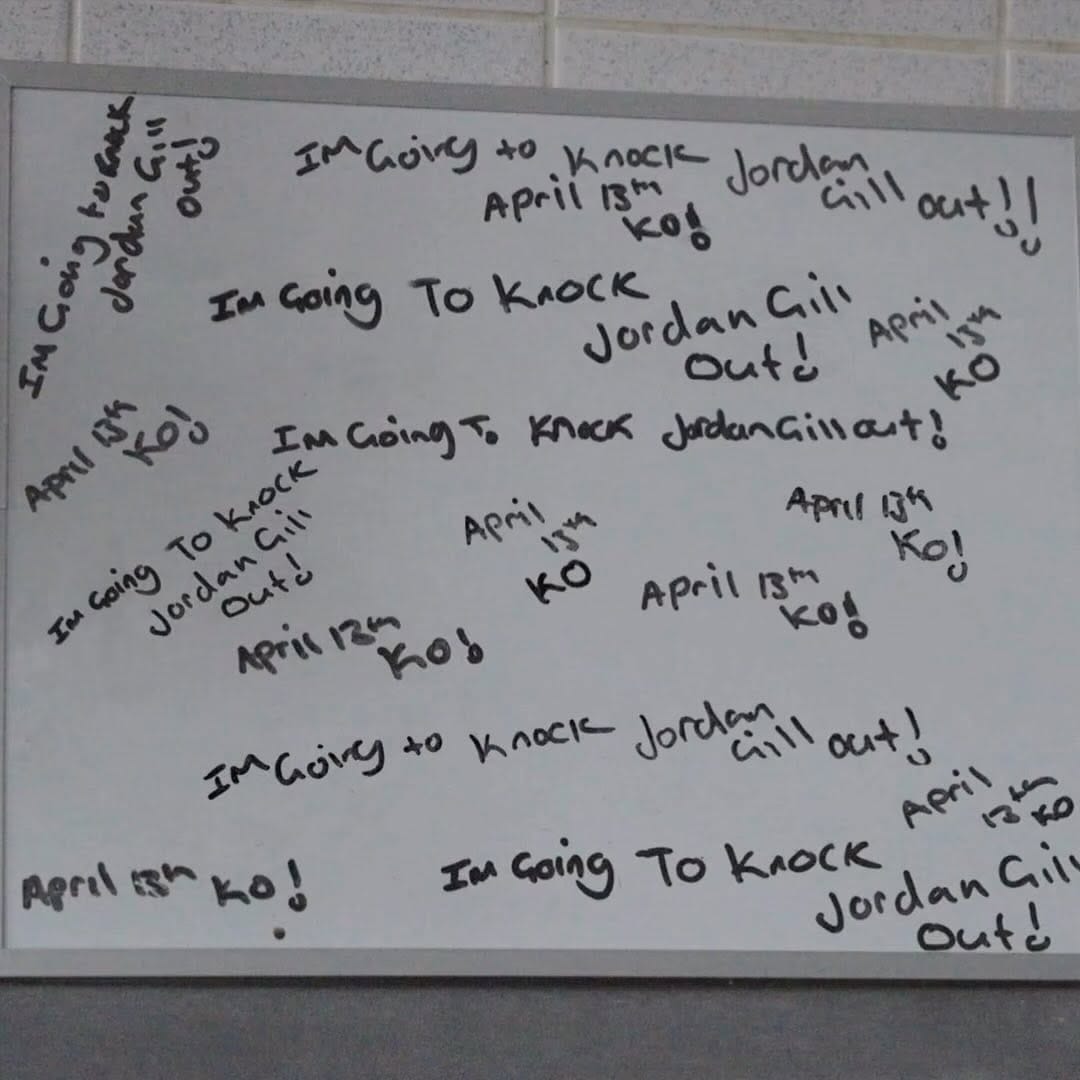 Im Going to Knock
Jordan Gill
Out!
Im Going to Knock Jordan
Gill out!!
April 13th
KO!
Im Going To Knock
Jordan Gill
Out!
April
13th
KO
April 13th
KO!
Im Going To Knock Jordan Gill out!
Im Going To Knock
Jordan Gill
Out!
April
13th
KO
April 13th
KO!
April 13th
KO!
April 13th
KO!
Im Going to Knock Jordan
Gill out!
April
13th KO
April 13th KO!
Im Going To Knock
Jordan Gill
Out!